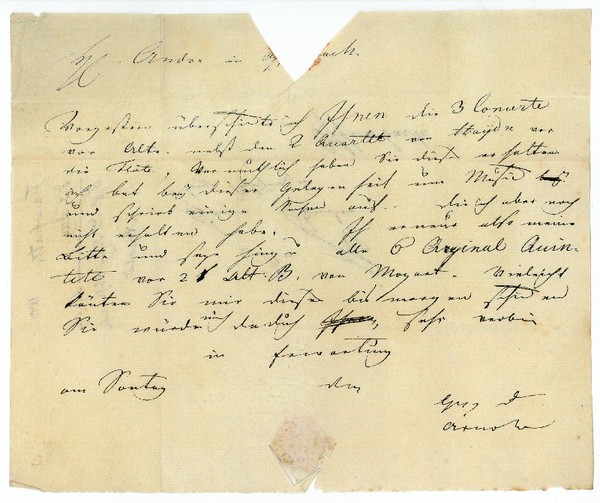 H. Andre in
Vorgestern überschickte ich Ihnen die 3 Concerte
vor Alto. nebst den 2 Quartett von Haydn vor
die Flöte, Vermuthlich haben Sie diese erhalten
ich bat bey dieser Gelegenheit um Music
und schrieb einige Sachen auf.. die ich aber noch
nicht erhalten habe. Ich erneure also meine
Bitte und sage hinzu alle 6 Orginal Quin-
tete vor 2 Alt: B. von Mozart. Vieleicht
könten Sie mir diese bis morgen schicken
Sie würden mich dadurch sehr verbin
in Erwartung
am Sontag den
Arnold